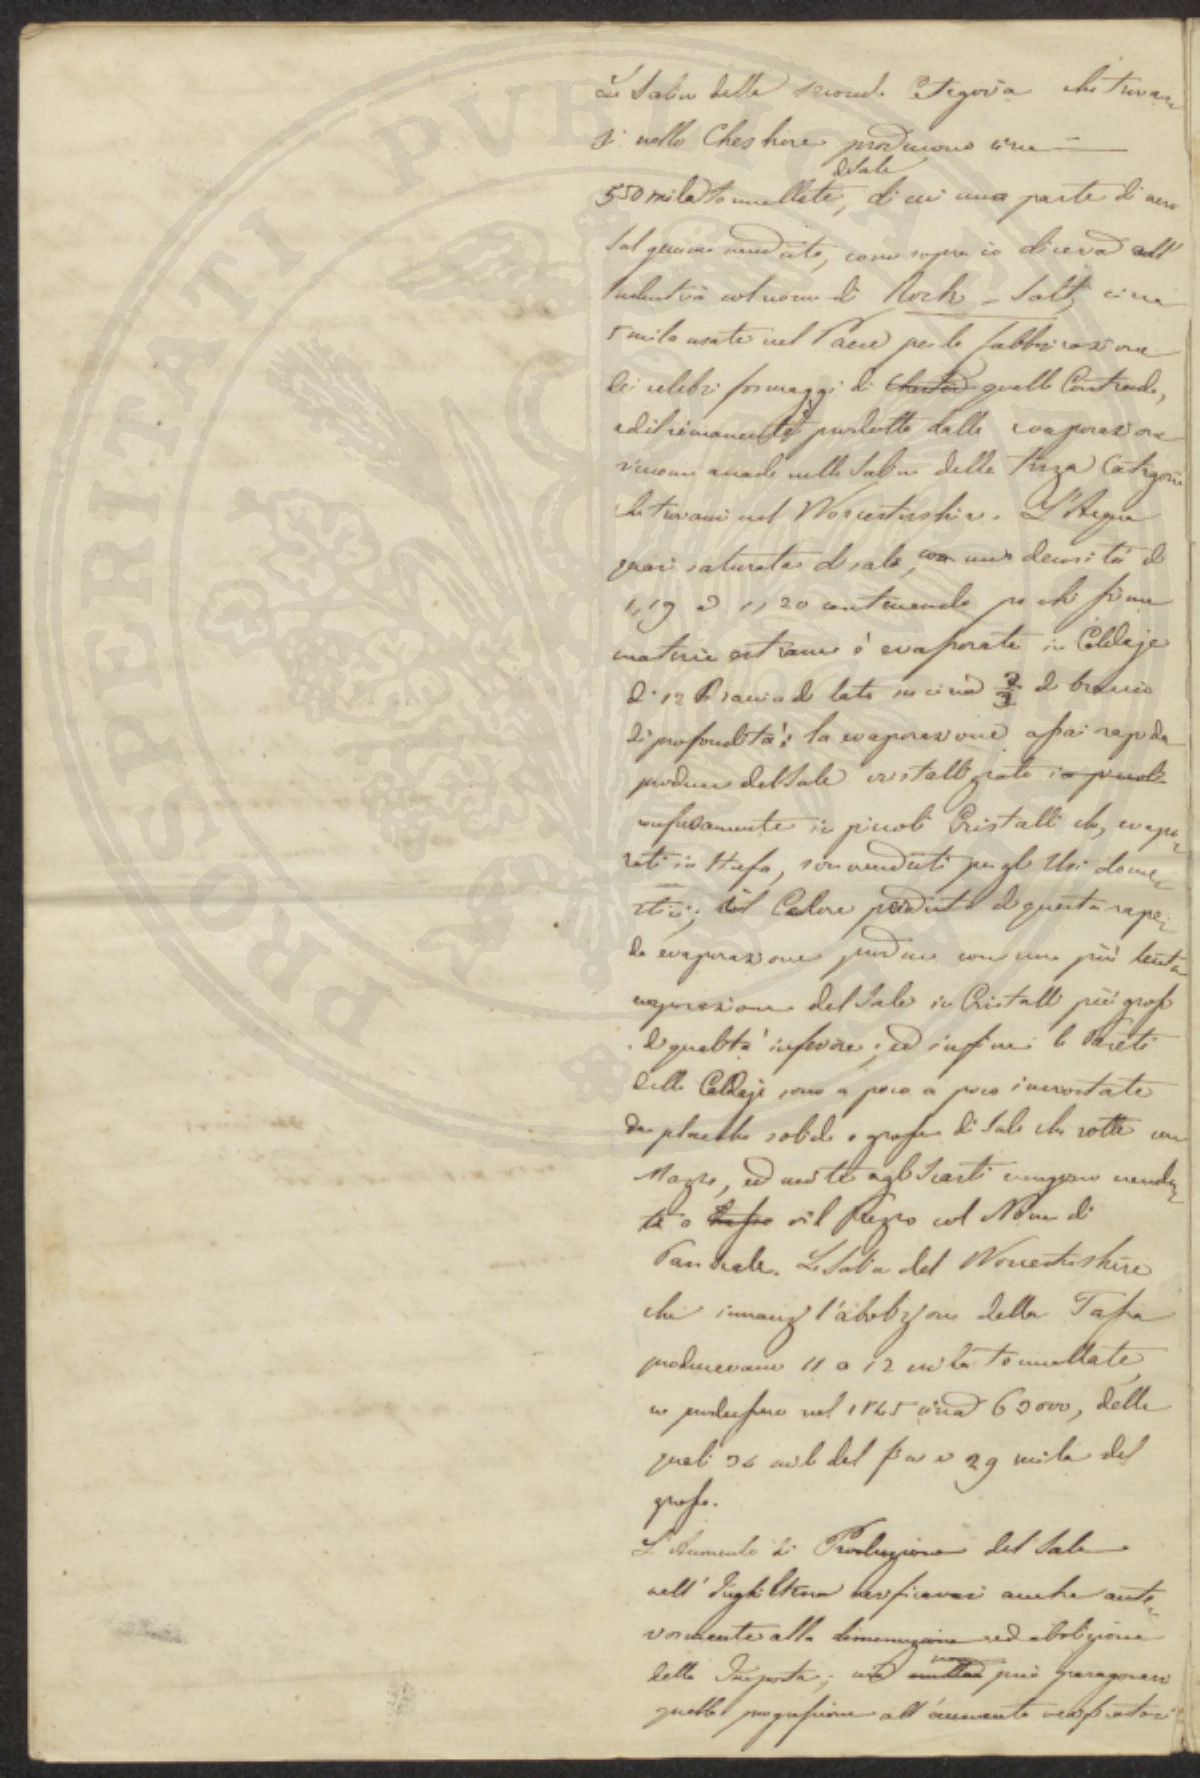 Le Saline della seconda Categoria che trovan=
si nello Cheshire producono circa
di Sale
550 mila tonnellate, di cui una parte di vero
Sal gemma venduto, come sopra io diceva all'
industria col nome di Rock-Salt, circa
5 mila usate nel Paese per la fabbricazione
dei celebri formaggi di Chester quelle Contrade,
ed il rimanente è prodotto dalla evaporazione
siccome accade nelle Saline della terza Categoria
che trovansi nel Worcestershire. L'Acqua
quasi satura di sale, con una densità di
1,19 a 1,20 contenendo pochissime
materie estranee è evaporata in Caldaje
di 12 Braccia di lato su circa 2/3 di braccio
di profondità: la evaporazione assai rapida
produce del Sale cristallizzato in piccoli
confusamente in piccoli Cristalli che, evapo=
rati in Stufa, son venduti per gli Usi dome=
stici; il Calore perduto di questa rapi=
da evaporazione produce con una più lenta
evaporazione del Sale in Cristalli più grossi
di qualità inferiore; ed infine le Pareti
delle Caldaje sono a poco a poco incrostate
da placche solide e grosse di Sale che rotte con
Mazze, ed unite agli Scarti vengono vendu=
te a basso vil Prezzo col Nome di
Pan Scale. Le Saline del Worcestershire
che innanzi l'abolizione della Tassa
producevano 11 a 12 mila tonnellate,
ne produssero nel 1845 circa 63000, delle
quali 34 mila del fino e 29 mila del
grosso.
L'Aumento di Produzione del Sale
nell'Inghilterra verificavasi anche ante=
riormente alla diminuzione ed abolizione
della Imposta; ma non può paragonarsi
quella progressione all'aumento verificatosi
PROSPERITATI PUBLICAE AUGENDAE